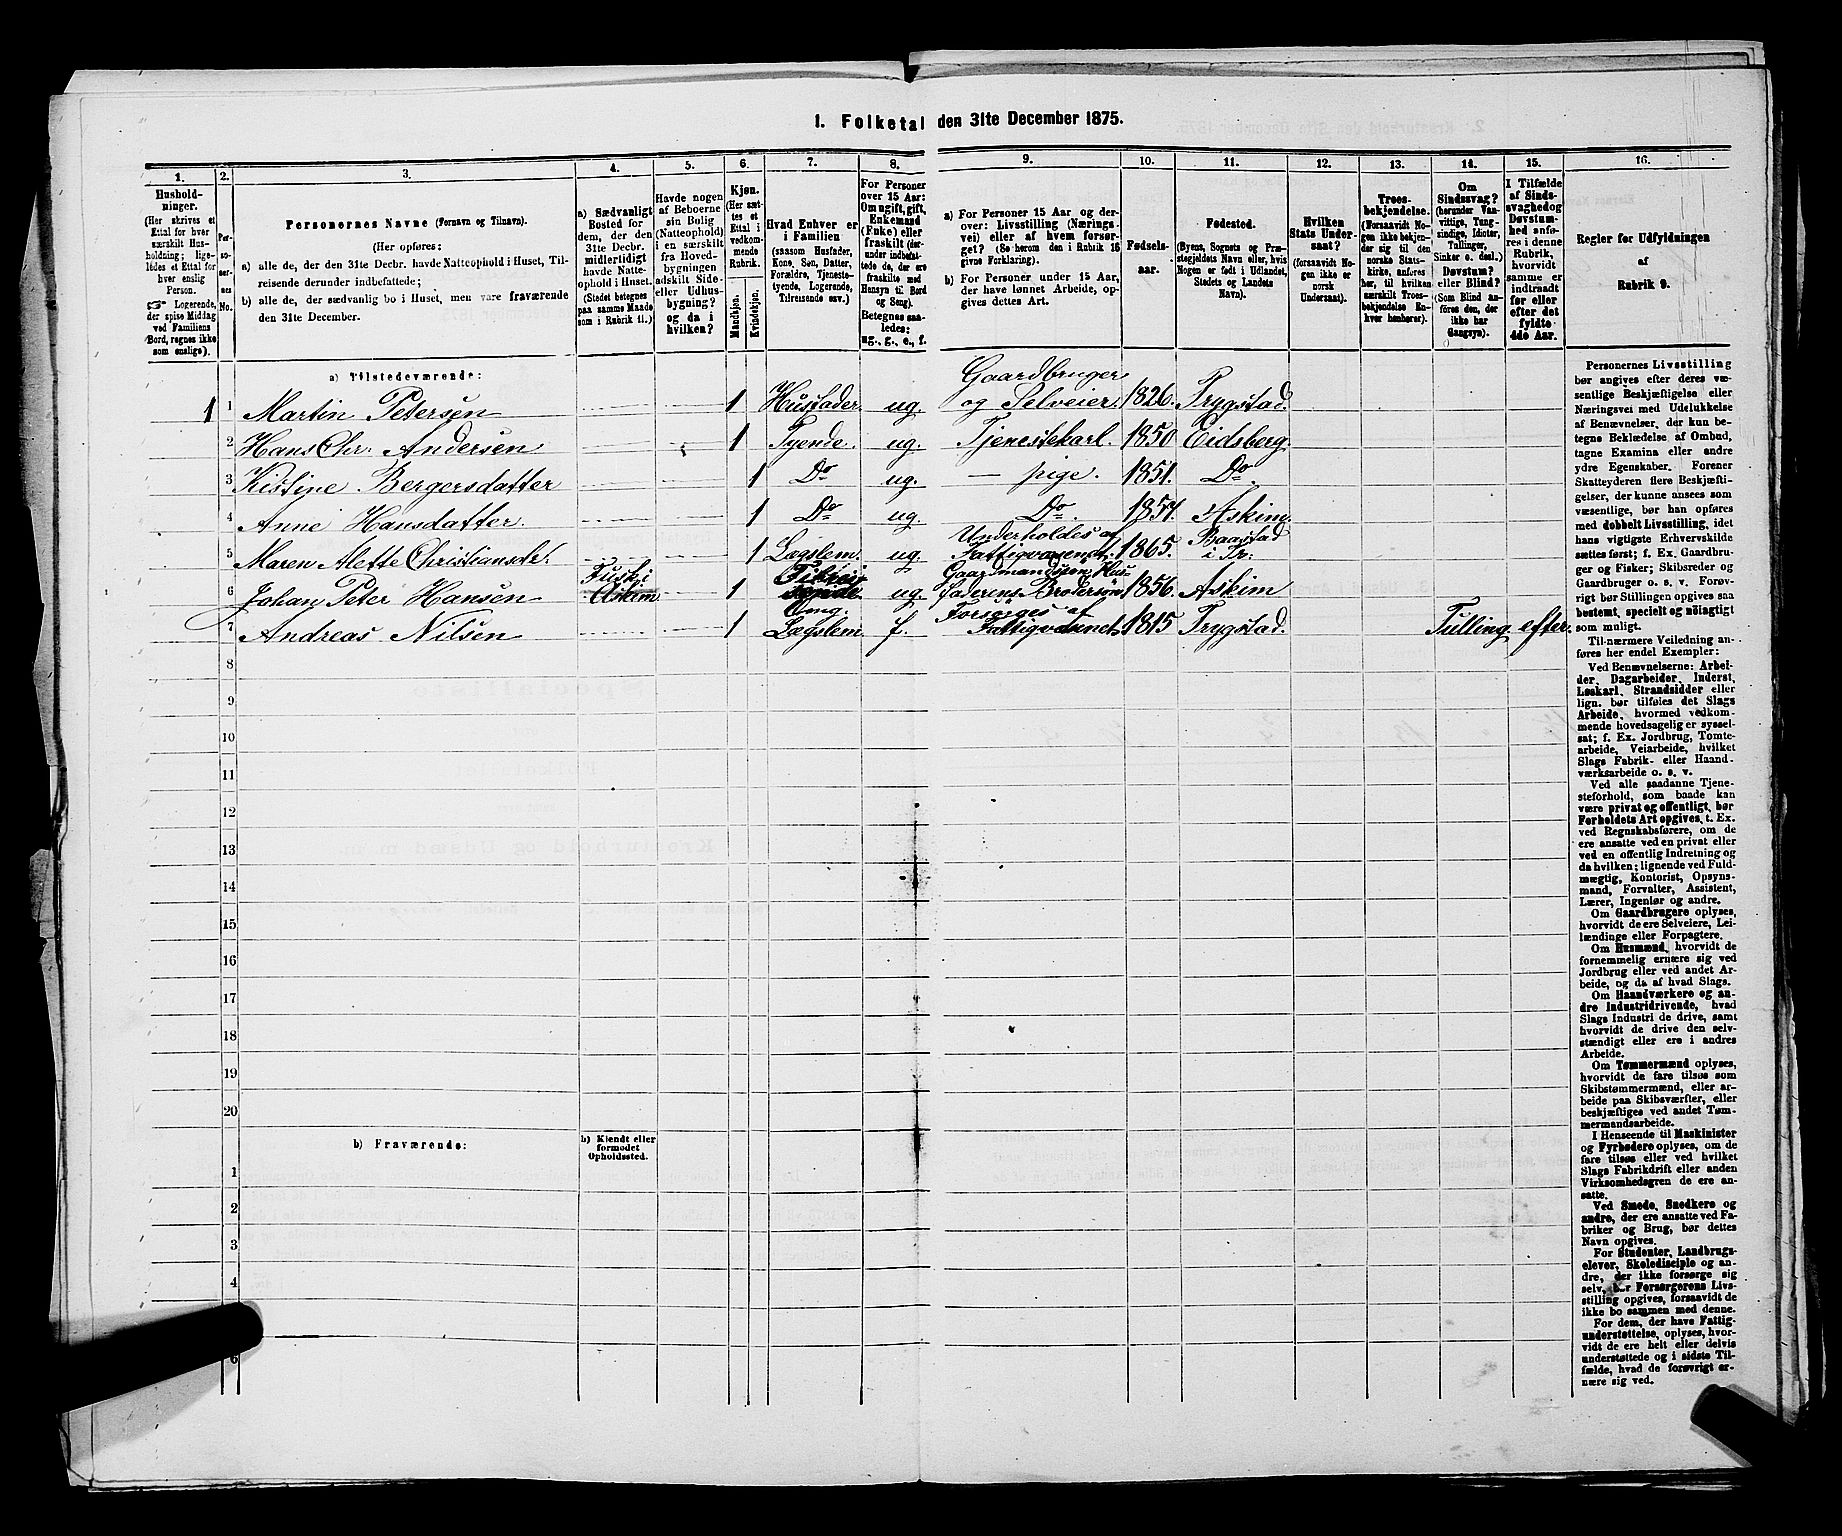 1. Folketal den 31te December 1875.
1.
2.
3.
4.
5.
6.
7.
8.
9.
10.
11.
12.
13.
14.
15.
16.
Hushold-
ninger.
(Her skrives et
Ettal for hver
særskilt Hus-
holdning; lige-
ledes et Ettal for
hver enslig
Person.
☞ Logerende,
der spise Middag
ved Familiens
Bord, regnes ikke
som enslige).
Per-
so-
ner-
nes
No.
Personernes Navne (Fornavn og Tilnavn).
(Her opføres:
a) alle de, der den 31te Decbr. havde Natteophold i Huset, Til-
reisende derunder indbefattede;
b) alle de, der sædvanlig bo i Huset, men vare fraværende
den 31te December.
a) Sædvanligt
Bosted for
dem, der den
31te Decbr.
midlertidigt
havde Natte-
ophold i Huset.
(Stedet betegnes
paa samme Maade
som i Rubrik 11.)
Havde nogen
af Beboerne
sin Bolig
(Natteophold)
i en særskilt
fra Hoved-
bygningen
adskilt Side-
eller Udhus-
bygning?
og da i
hvilken?
Kjøn.
(Her sæt-
tes et
Ettal i
vedkom-
mende
Rubrik.
Mandkjøn.
Kvindekjøn.
Hvad Enhver er
i Familien
(saasom Husfader,
Kone, Søn, Datter,
Forældre, Tjeneste-
tyende, Logerende,
Tilreisende osv.)
For Personer
over 15 Aar:
Om ugift, gift,
Enkemand
(Enke) eller
fraskilt (der-
under indbefat-
tede de, der ere
fraskilte med
Hensyn til Bord
og Seng).
Betegnes saa-
ledes:
ug., g., e., f.
a) For Personer 15 Aar og der-
over: Livsstilling (Nærings-
vei) eller af hvem forsør-
get? (Se herom den i Rubrik 16
givne Forklaring).
b) For Personer under 15 Aar,
der have lønnet Arbeide, op-
gives dettes Art.
Fødsels-
aar.
Fødested.
(Byens, Sognets og Præ-
stegjeldets Navn eller, hvis
Nogen er født i Udlandet,
Stedets og Landets
Navn).
Hvilken
Stats Under-
saat?
(forsaavidt No-
gen ikke er
norsk
Undersaat).
Troes-
bekjendelse.
(Forsaavidt No-
gen ikke bekjen-
der sig til den
norske Stats-
kirke, anføres
her, til hvilken
særskilt Troes-
bekjendelse En-
hver henhører).
Om
Sindssvag?
(herunder Van-
vittige, Tung-
sindige, Idioter,
Tullinger,
Sinker o. desl.)
Døvstum?
eller Blind?
(Som Blind an-
føres den, der
ikke har
Gangsyn).
I Tilfælde
af Sinds-
svaghed og
Døvstum-
hed anfø-
res i denne
Rubrik,
hvorvidt
samme er
indtraadt
før eller
efter det
fyldte
4de Aar.
Regler for Udfyldningen
af
Rubrik 9.
a) Tilstedeværende:
1 1 Martin Petersen 1 Husfader. ug. Gaardbruger
og Selveier. 1826. Trygstad.
2 Hans Chr. Andersen 1 Tyende. ug. Tjenestekarl. 1850. Eidsberg.
3 Kistine Bergersdatter 1 Do ug. — pige. 1851. Do.
4 Anne Hansdatter. 1 Do ug. Do. 1857. Askim.
5 Maren Alette Christiansdt. 1 Lægslem. ug. Underholdes af
Fattigvæsenet. 1865. Baastad
i Tr.
6 Johan Peter Hansen Askim 1 ug. Gaardmandssøn, Hus-
faderens Brodersøn 1856. Askim
7 Andreas Nilsen 1 Omg.
Lægslem f. Forsørges af
Fattigvæsnet 1815 Trygstad. Tulling. efter.
8
9
10
11
12
13
14
15
16
17
18
19
20
b) Fraværende:
b) Kjendt eller
formodet
Opholdssted.
1
2
3
4
6
Personernes Livsstilling
bør angives efter deres væ-
sentlige Beskjæftigelse eller
Næringsvei med Udelukkelse
af Benævnelser, der kun be-
tegne Beklædelse af Ombud,
tagne Examina eller andre
ydre Egenskaber. Forener
Skatteyderen flere Beskjæfti-
gelser, der kunne ansees som
væsentlige, bør han opføres
med dobbelt Livsstilling, idet
hans vigtigste Erhvervskilde
sættes først; f. Ex. Gaardbru-
ger og Fisker; Skibsreder og
Gaardbruger o. s. v. Forøv-
rigt bør Stillingen opgives saa
bestemt, specielt og nöiagtigt
som muligt.
Til nærmere Veiledning an-
føres her endel Exempler:
Ved Benævnelserne: Arbei-
der, Dagarbeider, Inderst,
Løskarl, Strandsidder eller
lign. bør tilføies det Slags
Arbeide, hvormed vedkom-
mende hovedsagelig er syssel-
sat; f. Ex. Jordbrug, Tomte-
arbeide, Veiarbeide, hvilket
Slags Fabrik- eller Haand-
værksarbeide o. s. v.
Ved alle saadanne Tjene-
steforhold, som baade kan
være privat og offentligt, bør
Forholdets Art opgives, t. Ex.
ved Regnskabsførere, om de
ere ansatte ved en privat eller
ved en offentlig Indretning og
da hvilken; lignende ved Fuld-
mægtig, Kontorist, Opsyns-
mand, Forvalter, Assistent,
Lærer, Ingeniør og andre.
Om Gaardbrugere oplyses,
hvorvidt de ere Selveiere, Lei-
lændinge eller Forpagtere.
Om Husmænd, hvorvidt de
fornemmelig ernære sig ved
Jordbrug eller ved andet Ar-
beide, og da af hvad Slags.
Om Haandværkere og an-
dre Industridrivende, hvad
Slags Industri de drive, samt
hvorvidt de drive den selv-
stændigt eller ere i andres
Arbeide.
Om Tømmermænd oplyses,
hvorvidt de fare tilsøs som
Skibstømmermænd, eller ar-
beide paa Skibsværfter, eller
beskjæftiges ved andet Tøm-
mermandsarbeide.
I Henseende til Maskinister
og Fyrbødere oplyses, om de
fare tilsøs eller ved hvilket
Slags Fabrikdrift eller anden
Virksomhedsgren de ere an-
satte.
Ved Smede, Snedkere og
andre, der ere ansatte ved Fa-
briker og Brug, bør dettes
Navn opgives.
For Studenter, Landbrugs-
elever, Skoledisciple og an-
dre, der ikke forsørge sig
selv, bør Forsørgerens Livs-
stilling opgives, forsaavidt de
ikke bo sammen med denne.
For dem, der have Fattig-
understøttelse, oplyses, hvor-
vidt de ere helt eller delvis
understøttede og i sidste Til-
fælde, hvad de forøvrigt er-
nære sig ved.